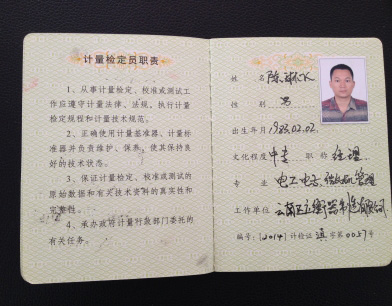 计量检定员职责
1、从事计量检定、校准或测试工
作应遵守计量法律、法规,执行计量
检定规程和计量技术规范。
2、正确使用计量基准器、计量标
准器并负责维护、保养,使其保持良
好的技术状态。
3、保证计量检定、校准或测试的
原始数据和有关技术资料的真实性和
完整性。
4、承办政府计量行政部门委托的
有关任务。
姓名 陈
性别 男
出生年月 1983.02.02.
文化程度 中专 职称 经理
专业 电工电子、微机 管理
工作单位 云南 衡器制造有限公司
编号:[2014]计检证 字第0057号